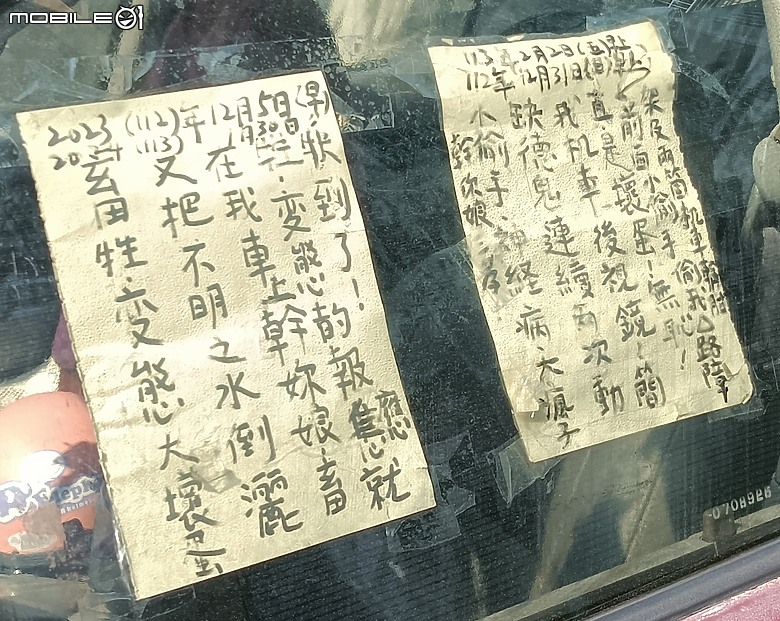 MOBILE01
2023 (112)年 12月5日(早)
2024 (113) 1月30日
玄田牲、变態大壞蛋
又把不明之水倒灑
在我車上幹妳娘畜
牲、变態的報應就
快到了!
113年2月2日(五)
112年12月31日(日)
幹你娘
小偷手、神経病大瘋子
缺德鬼連續兩次動
我机車後視鏡!簡
直是壞蛋!無恥!
前面小偷手偷我
架及兩箇机車
路障
0708926